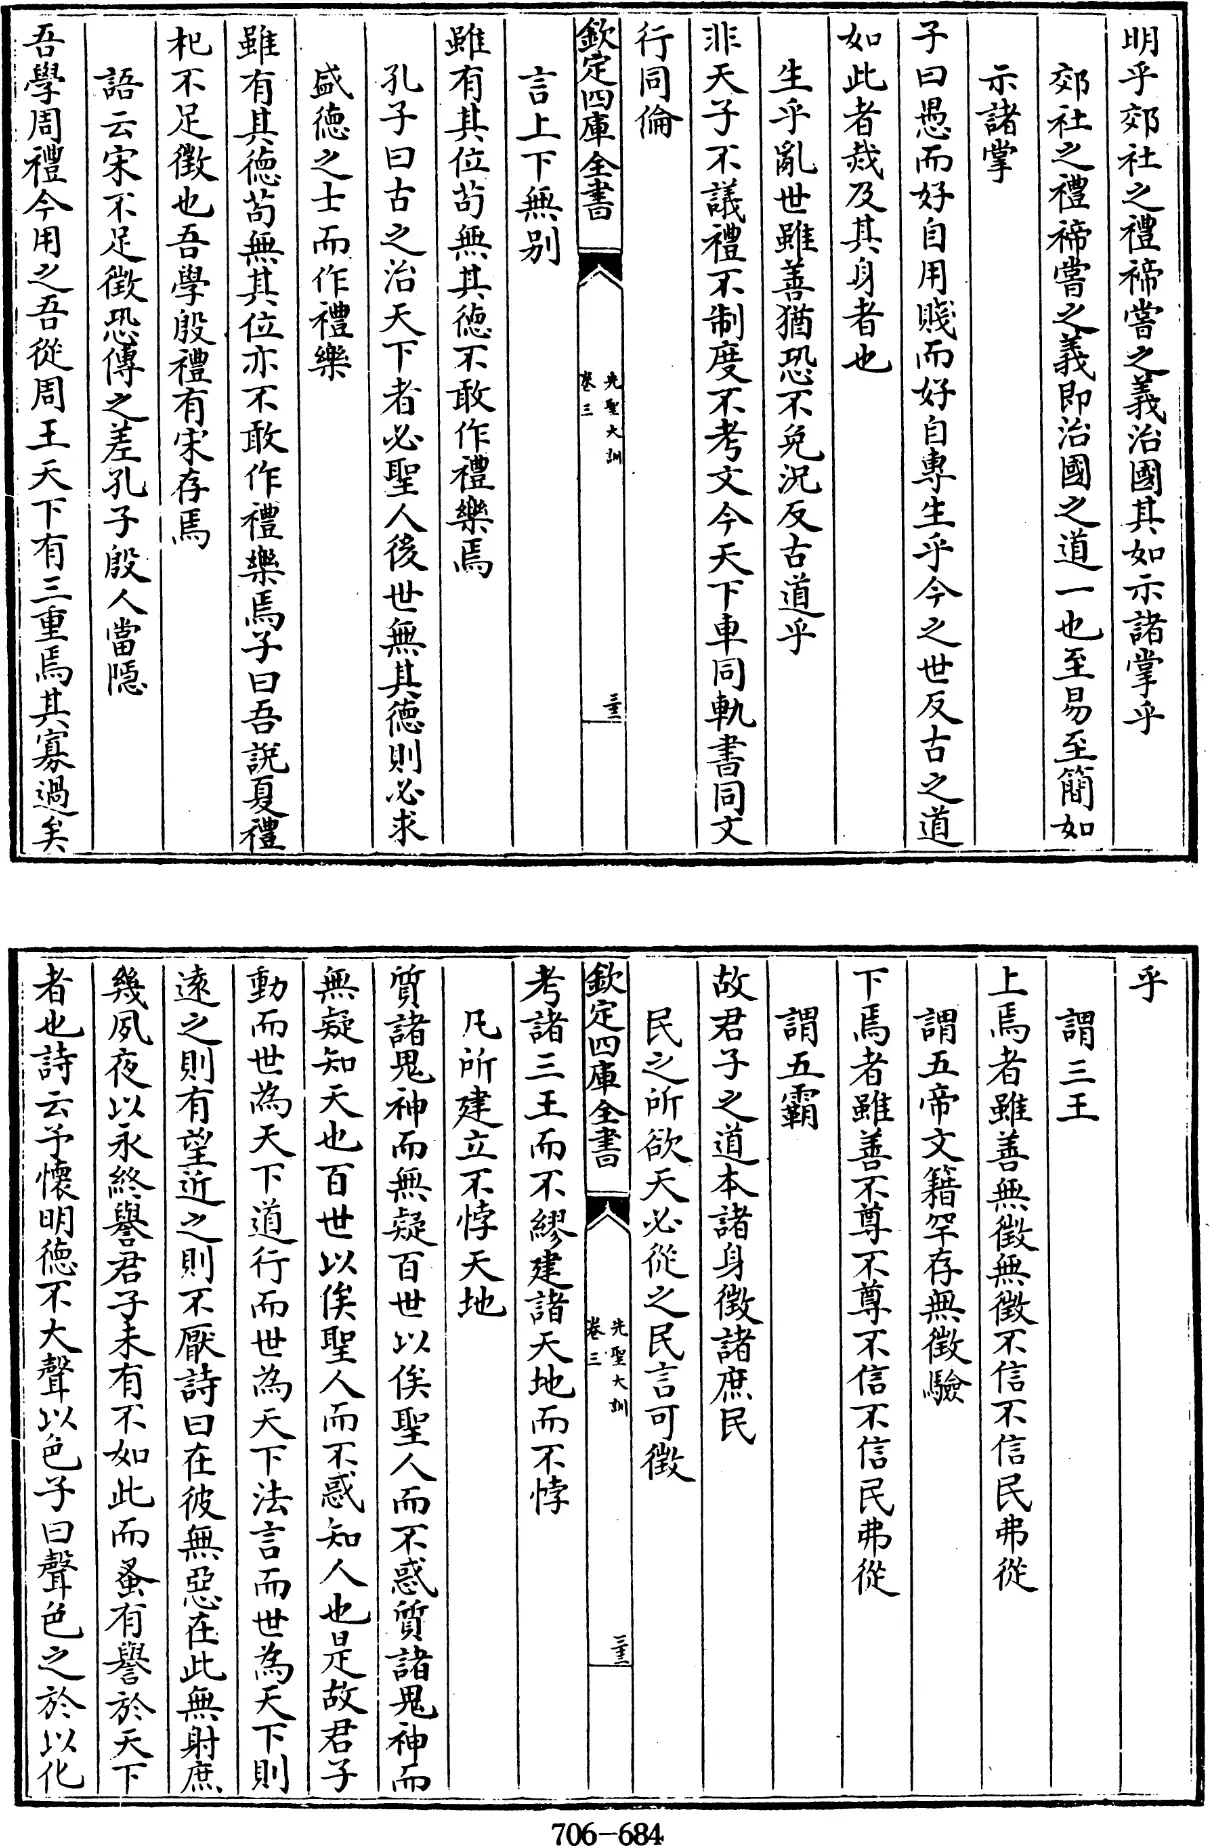 明乎郊社之禮禘嘗之義治國其如示諸掌乎
郊社之禮禘嘗之義即治國之道一也至易至簡如
示諸掌
子曰愚而好自用賤而好自專生乎今之世反古之道
如此者烖及其身者也
生乎亂世雖善猶恐不免況反古道乎
非天子不議禮不制度不考文今天下車同軌書同文
行同倫
欽定四庫全書
先聖大訓
卷三
三十二
言上下無别
雖有其位茍無其德不敢作禮樂焉
孔子曰古之治天下者必聖人後世無其德則必求
盛德之士而作禮樂
雖有其德茍無其位亦不敢作禮樂焉子曰吾説夏禮
杞不足徵也吾學殷禮有宋存焉
語云宋不足徵恐傳之差孔子殷人當隱
吾學周禮今用之吾從周王天下有三重焉其寡過矣
乎
謂三王
上焉者雖善無徵無徵不信不信民弗從
謂五帝文籍罕存無徵驗
下焉者雖善不尊不尊不信不信民弗從
謂五霸
故君子之道本諸身徵諸庶民
民之所欲天必從之民言可徵
欽定四庫全書
先聖大訓
卷三
三十三
考諸三王而不繆建諸天地而不悖
凡所建立不悖天地
質諸鬼神而無疑百世以俟聖人而不惑質諸鬼神而
無疑知天也百世以俟聖人而不惑知人也是故君子
動而世為天下道行而世為天下法言而世為天下則
遠之則有望近之則不厭詩曰在彼無惡在此無射庶
幾夙夜以永終譽君子未有不如此而蚤有譽於天下
者也詩云予懷明德不大聲以色子曰聲色之於以化
706-684